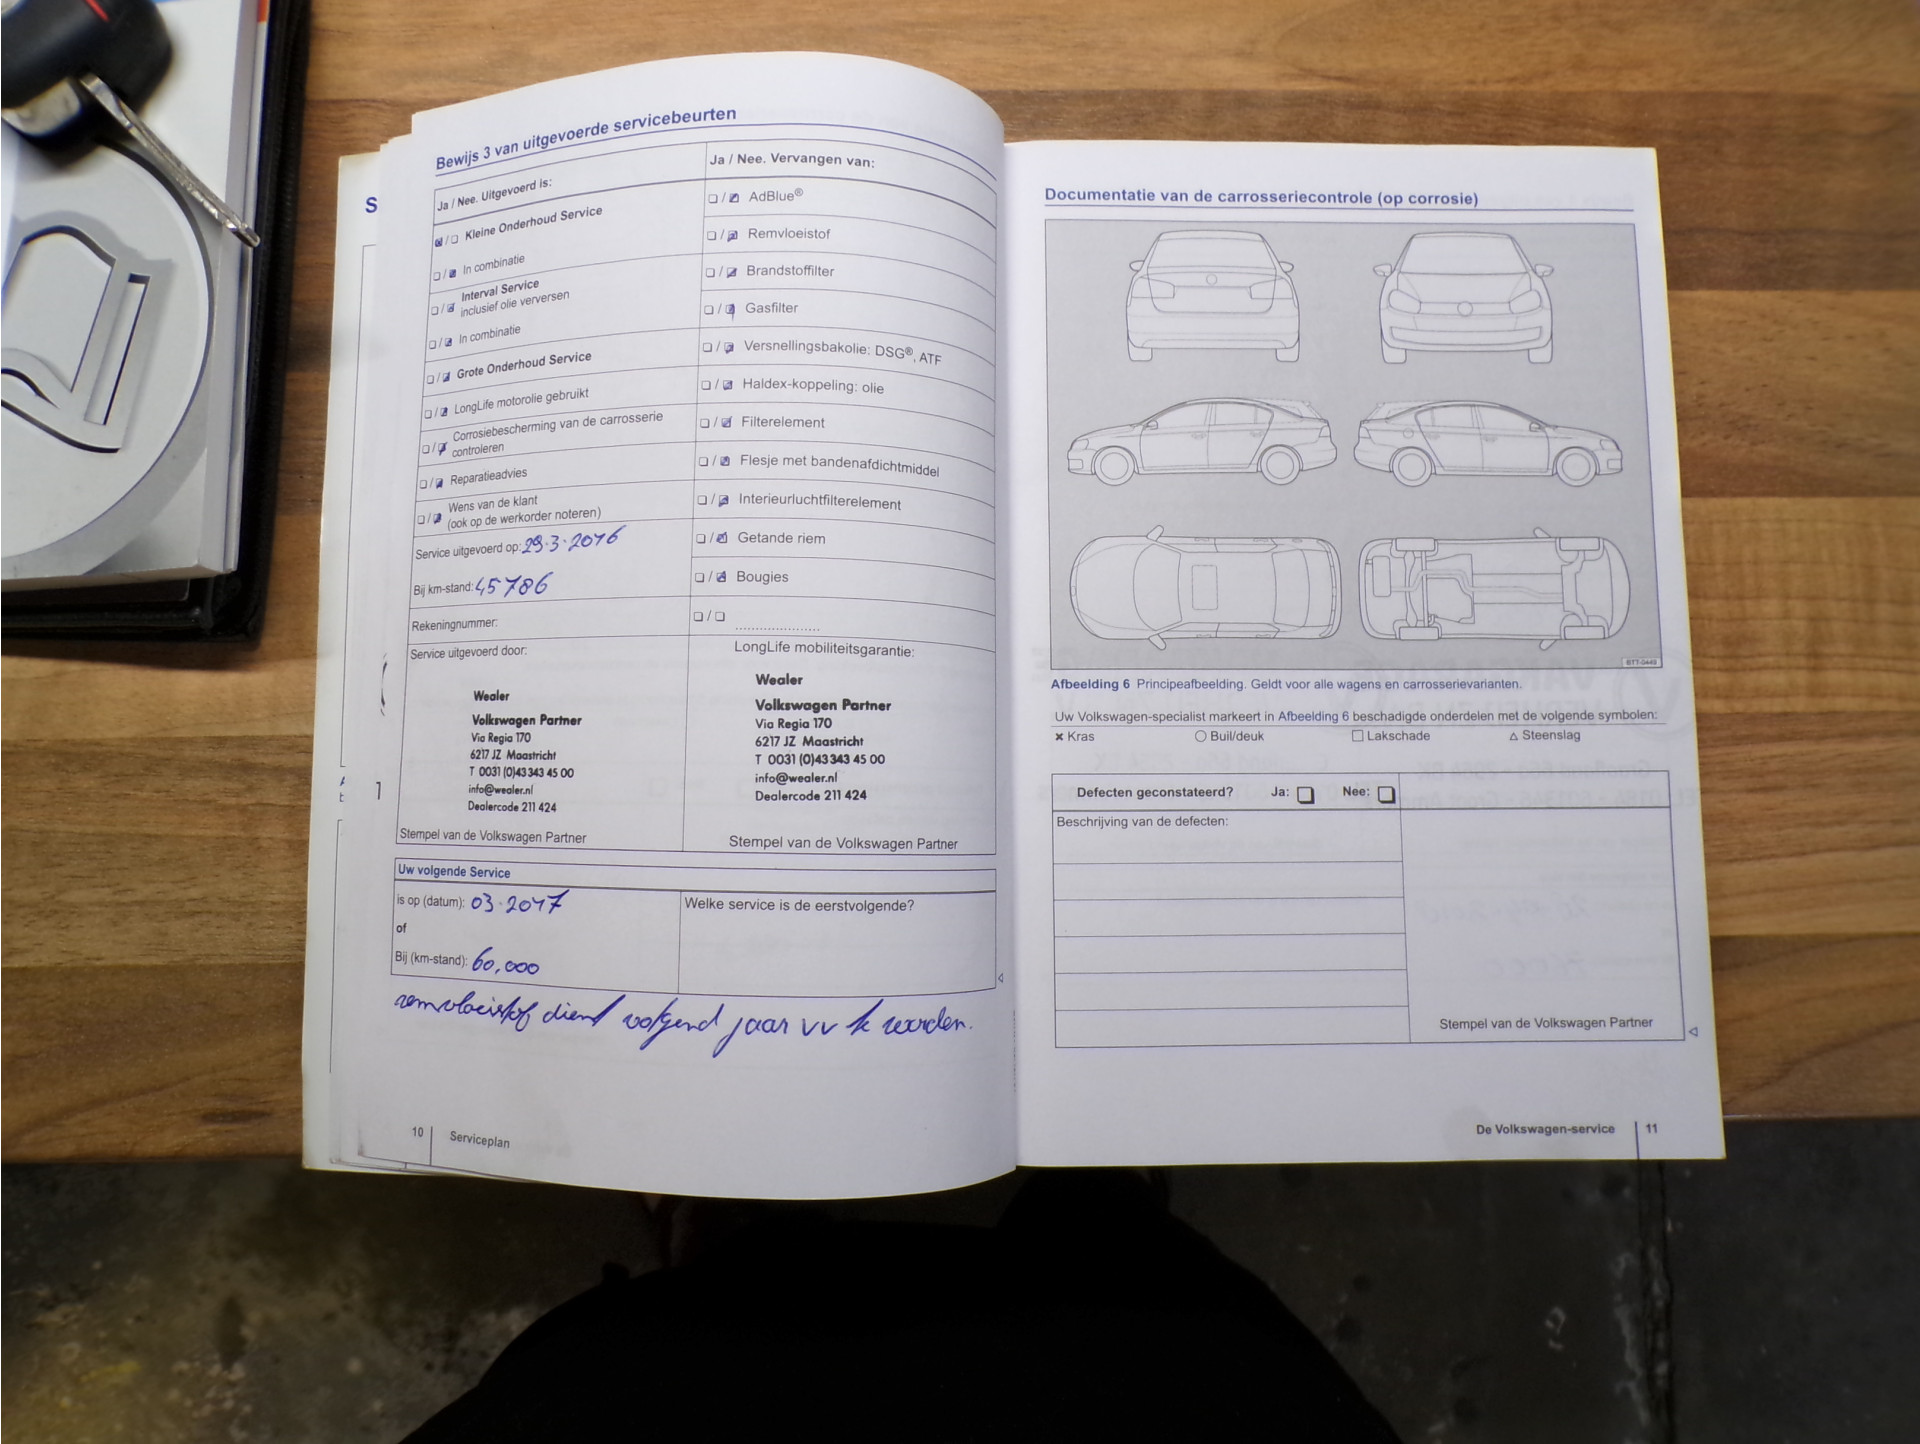 Bewijs 3 van uitgevoerde servicebeurten
Ja / Nee. Uitgevoerd is:
Kleine Onderhoud Service
In combinatie
Interval Service
inclusief olie verversen
In combinatie
Grote Onderhoud Service
LongLife motorolie gebruikt
Corrosiebescherming van de carrosserie
controleren
Reparatieadvies
Wens van de klant
(ook op de werkorder noteren)
Service uitgevoerd op: 29-3-2016
Bij km-stand: 45786
Rekeningnummer:
Service uitgevoerd door:
Wealer
Volkswagen Partner
Via Regia 170
6217 JZ Maastricht
T 0031 (0)43 343 45 00
info@wealer.nl
Dealercode 211 424
Stempel van de Volkswagen Partner
Ja / Nee. Vervangen van:
AdBlue®
Remvloeistof
Brandstoffilter
Gasfilter
Versnellingsbakolie: DSG®, ATF
Haldex-koppeling: olie
Filterelement
Flesje met bandenafdichtmiddel
Interieurluchtfilterelement
Getande riem
Bougies
/
LongLife mobiliteitsgarantie:
Wealer
Volkswagen Partner
Via Regia 170
6217 JZ Maastricht
T 0031 (0)43 343 45 00
info@wealer.nl
Dealercode 211 424
Stempel van de Volkswagen Partner
Uw volgende Service
is op (datum): 03-2017
of
Bij (km-stand): 60.000
Welke service is de eerstvolgende?
remvloeistof dient volgend jaar vv te worden.
10
Serviceplan
Documentatie van de carrosseriecontrole (op corrosie)
BTT-0449
Afbeelding 6 Principeafbeelding. Geldt voor alle wagens en carrosserievarianten.
Uw Volkswagen-specialist markeert in Afbeelding 6 beschadigde onderdelen met de volgende symbolen:
× Kras
○ Buil/deuk
□ Lakschade
△ Steenslag
Defecten geconstateerd? Ja: □ Nee: □
Beschrijving van de defecten:
Stempel van de Volkswagen Partner
De Volkswagen-service
11